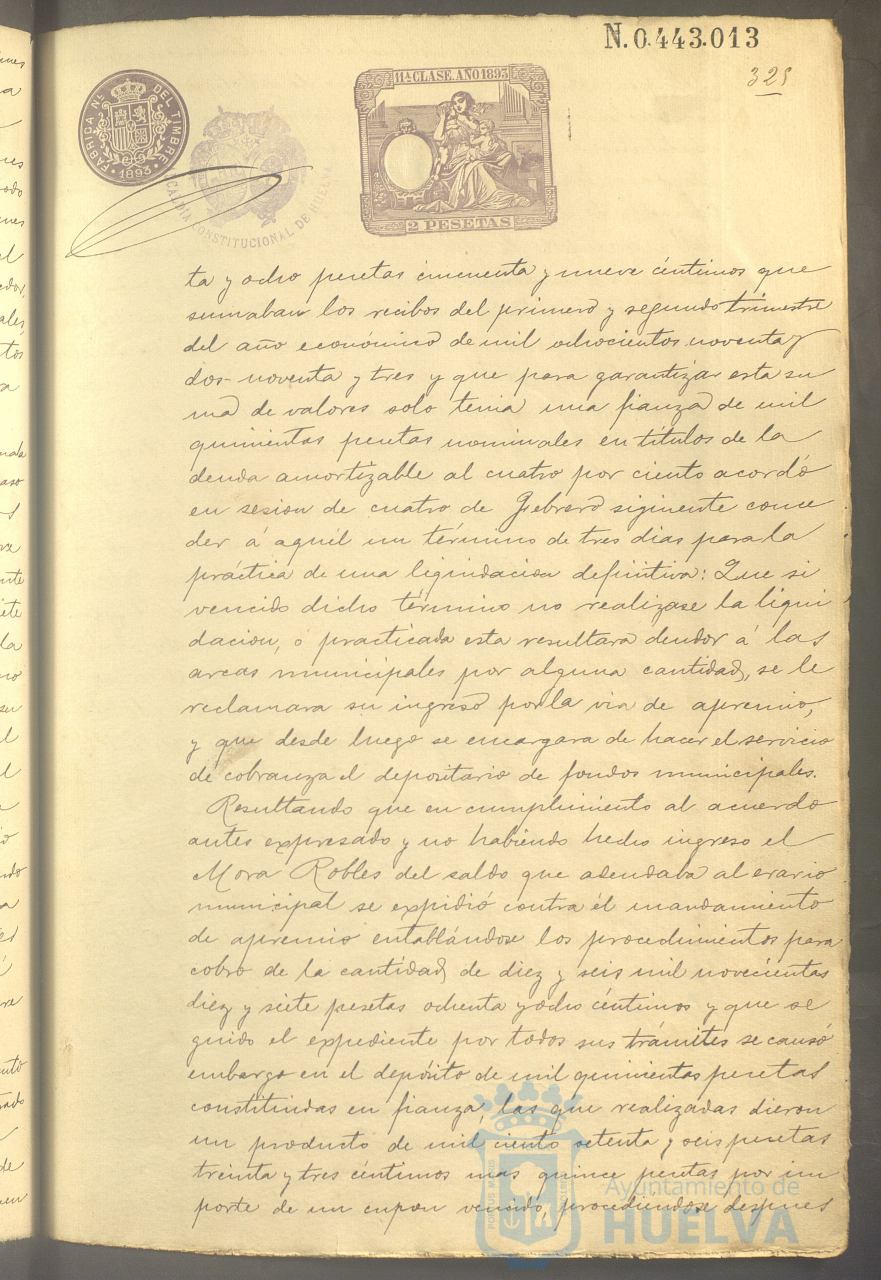 N.0.443.013
325
11ª CLASE. AÑO 1893
FABRICA NL. DEL TIMBRE
1893
ALCALDIA CONSTITUCIONAL DE HUELVA
2 PESETAS
ta y ocho pesetas cincuenta y nueve céntimos que
sumaban los recibos del primero y segundo trimestre
del año económico de mil ochocientos noventa y
dos-noventa y tres y que para garantizar esta su
ma de valores solo tenia una fianza de mil
quinientas pesetas nominales en títulos de la
deuda amortizable al cuatro por ciento acordó
en sesion de cuatro de Febrero siguiente conce
der á aquél un término de tres dias para la
práctica de una liquidacion definitiva: Que si
vencido dicho término no realizase la liqui
dacion, ó practicada esta resultara deudor á las
arcas municipales por alguna cantidad, se le
reclamara su ingreso por la via de apremio,
y que desde luego se encargara de hacer el servicio
de cobranza el depositario de fondos municipales.
Resultando que en cumplimiento al acuerdo
antes expresado y no habiendo hecho ingreso el
Mora Robles del saldo que adeudaba al erario
municipal se expidió contra él mandamiento
de apremio entablándose los procedimientos para
cobro de la cantidad de diez y seis mil novecientas
diez y siete pesetas ochenta y ocho céntimos y que se
guido el expediente por todos sus trámites se causó
embargo en el depósito de mil quinientas pesetas
constituidas en fianza, las que realizadas dieron
un producto de mil ciento setenta y seis pesetas
treinta y tres céntimos mas quince pesetas por im
porte de un cupon vencido, procediéndose despues
Ayuntamiento de
HUELVA